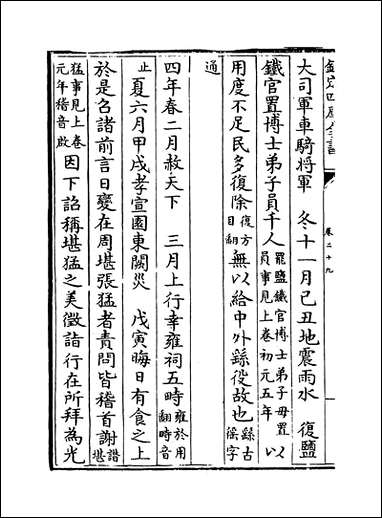 欽定四庫全書
卷二十九
大司軍車騎將軍　冬十一月己丑地震雨水　復鹽
鐵官置博士弟子員千人罷鹽鐵官博士弟子毋置員事見上卷初元五年以
用度不足民多復除復方目翻無以給中外繇役故也繇古徭字
通
四年春二月赦天下　三月上行幸雍祠五畤雍於用翻畤音
止夏六月甲戌孝宣園東闕災　戊寅晦日有食之上
於是召諸前言日變在周堪張猛者責問皆稽首謝譖堪
猛事見上卷元年稽音啟因下詔稱堪猛之美徵詣行在所拜為光